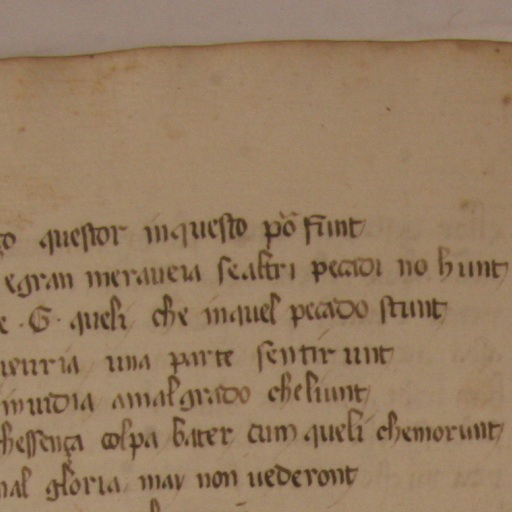 questor inquesto põ funt
egran meraueia sealtri pecadi no hunt
e · G · queli che inquel pecado stunt
ueuria una parte sentir unt
inuidia amalgrado cheliunt
hessença colpa bater cum queli chemorunt
nal gloria may non uederont